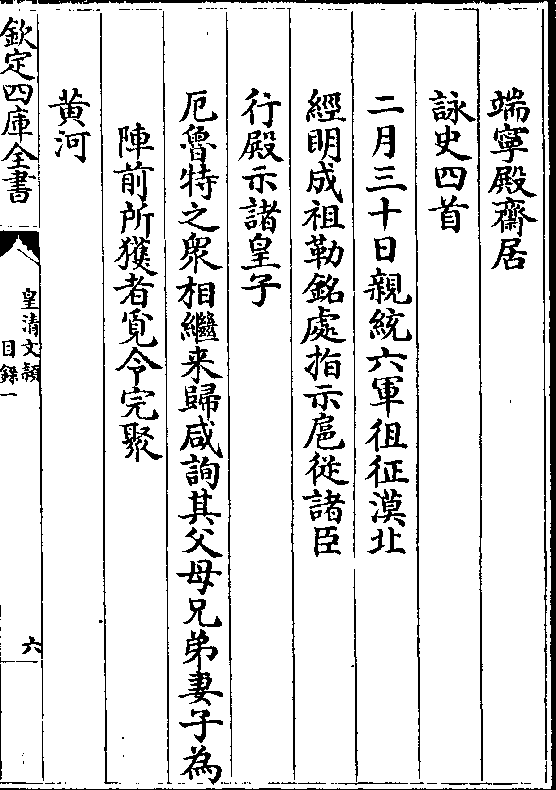 端寧殿齋居
詠史四首
二月三十日親統六軍徂征漠北
經明成祖勒銘處指示扈從諸臣
行殿示諸皇子
厄魯特之衆相繼来歸咸詢其父母兄弟妻子為
陣前所獲者覓令完聚
黄河
欽定四庫全書
皇清文穎
目錄一
六